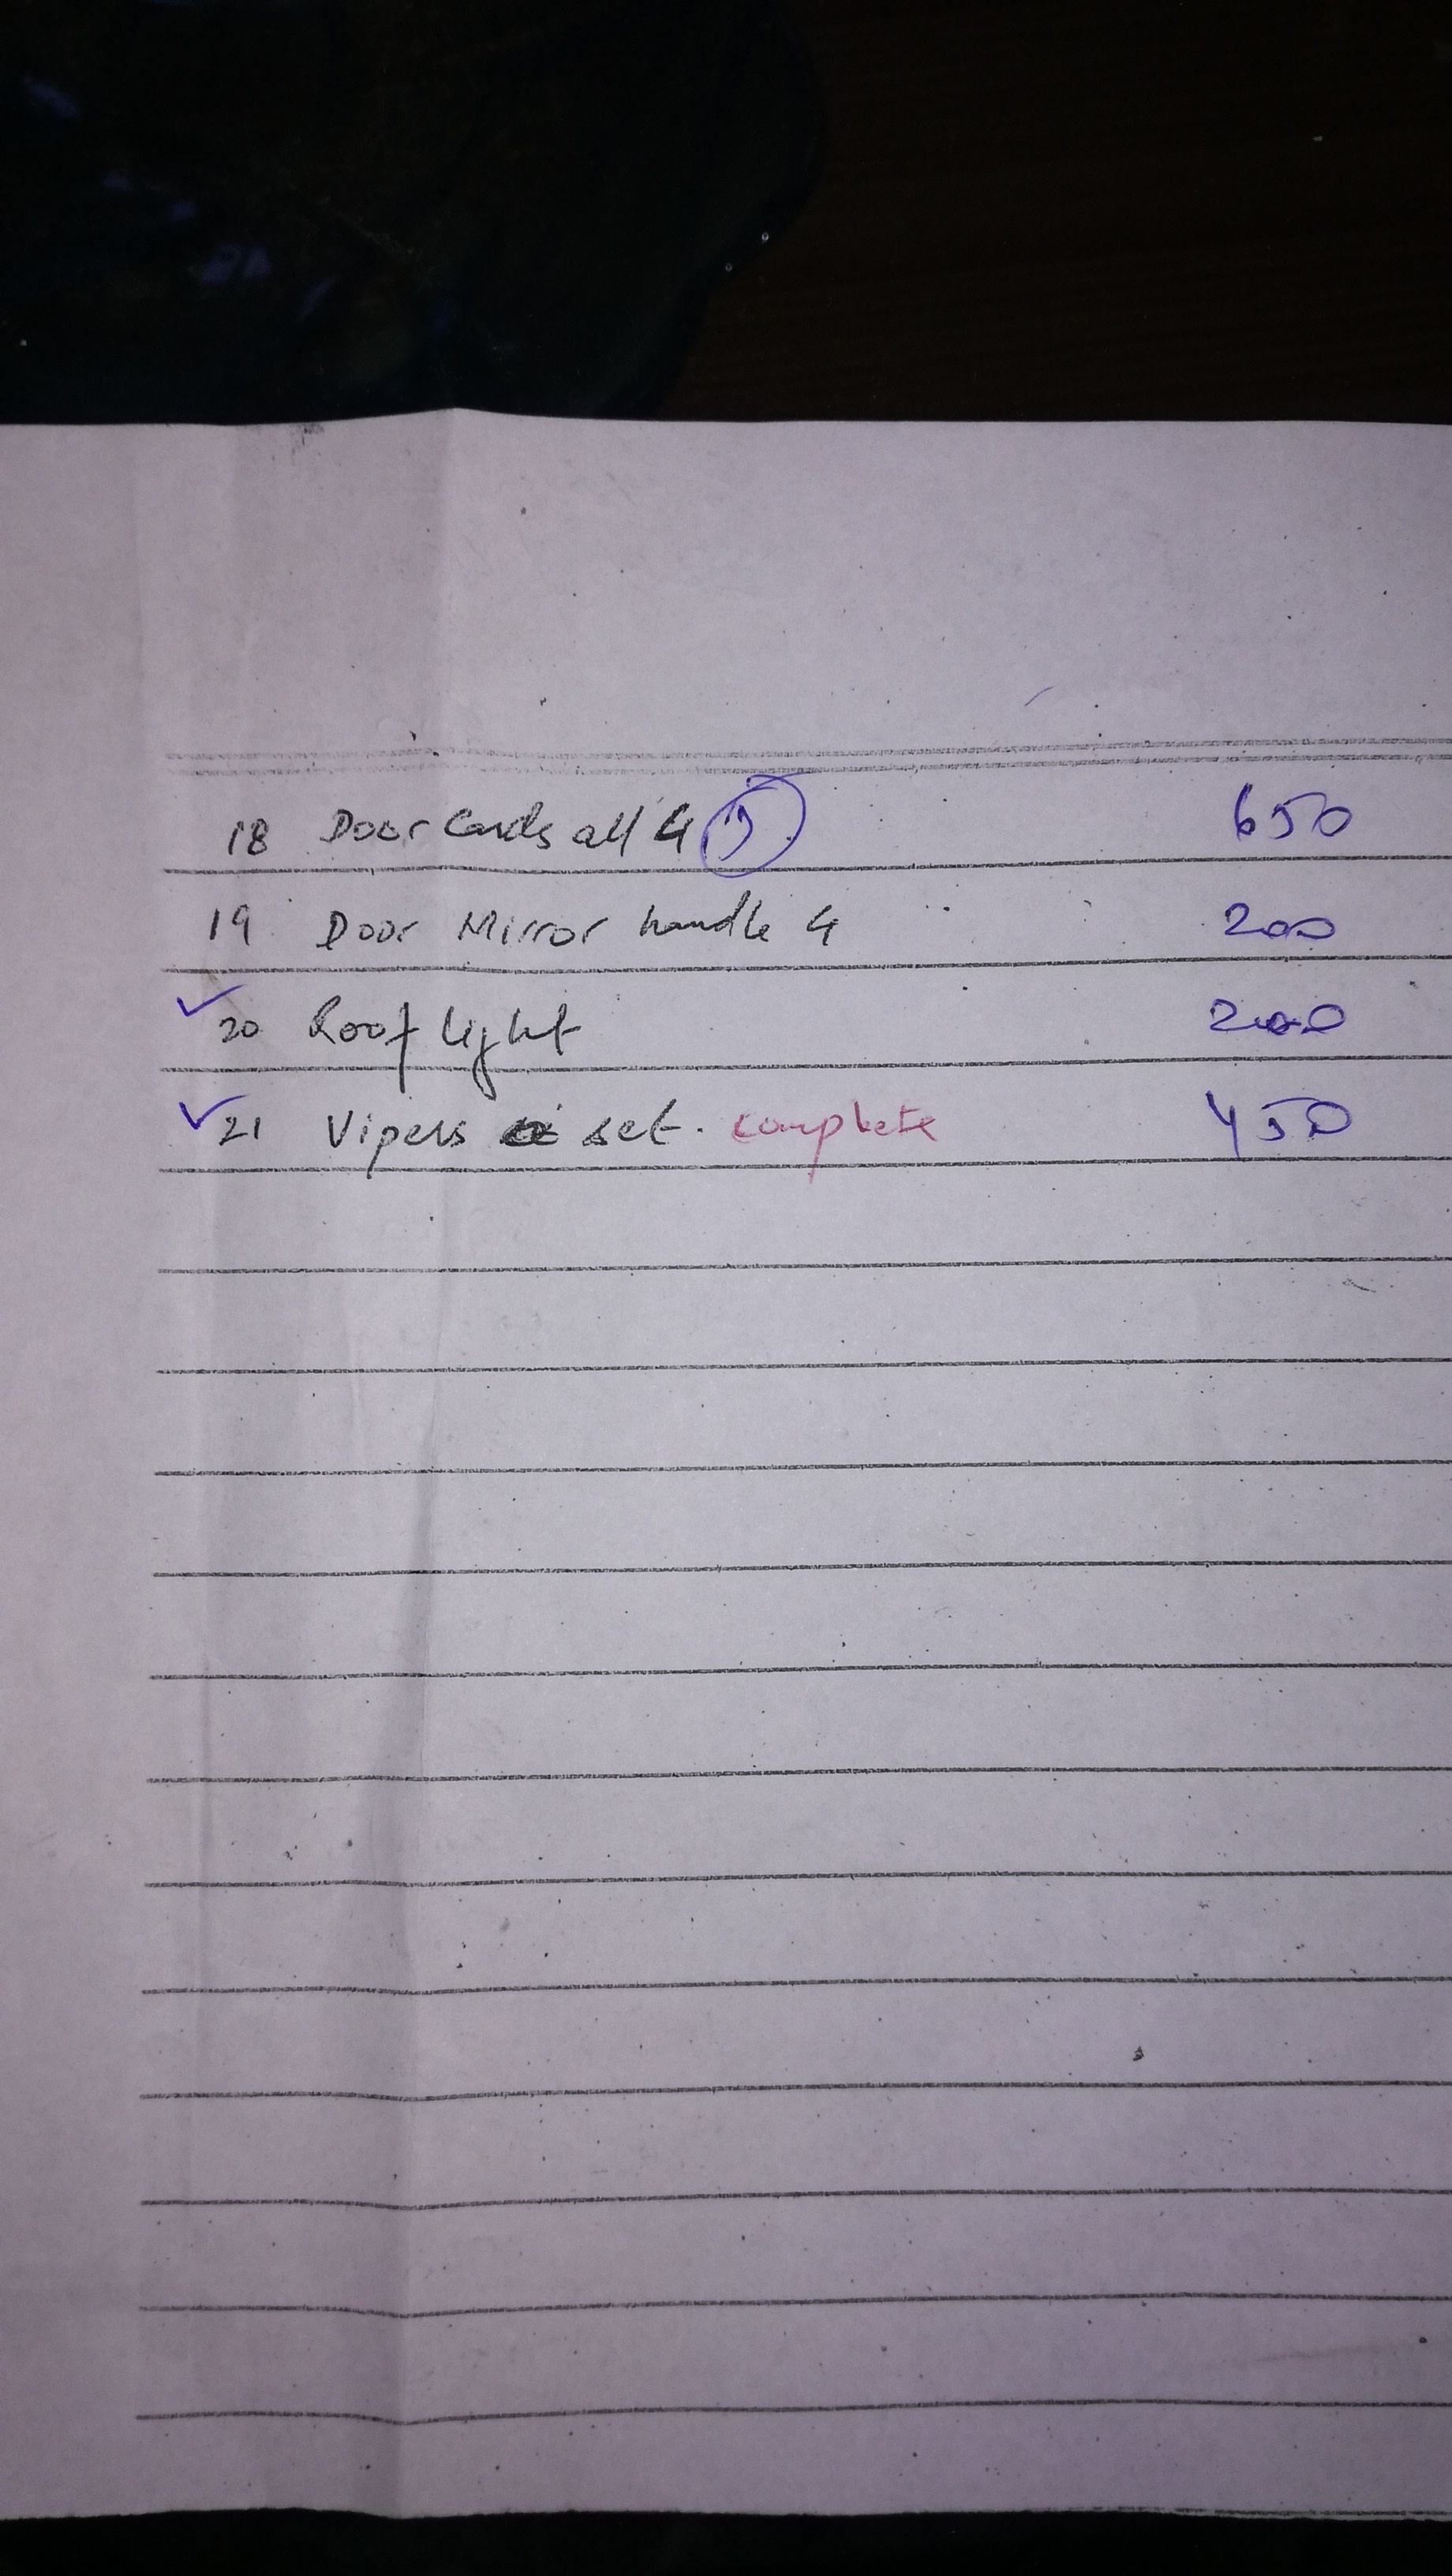 18 Door Cards all 4 650
19 Door Mirror handle 4 200
✓ 20 Roof light 200
✓ 21 Vipers set. complete 450